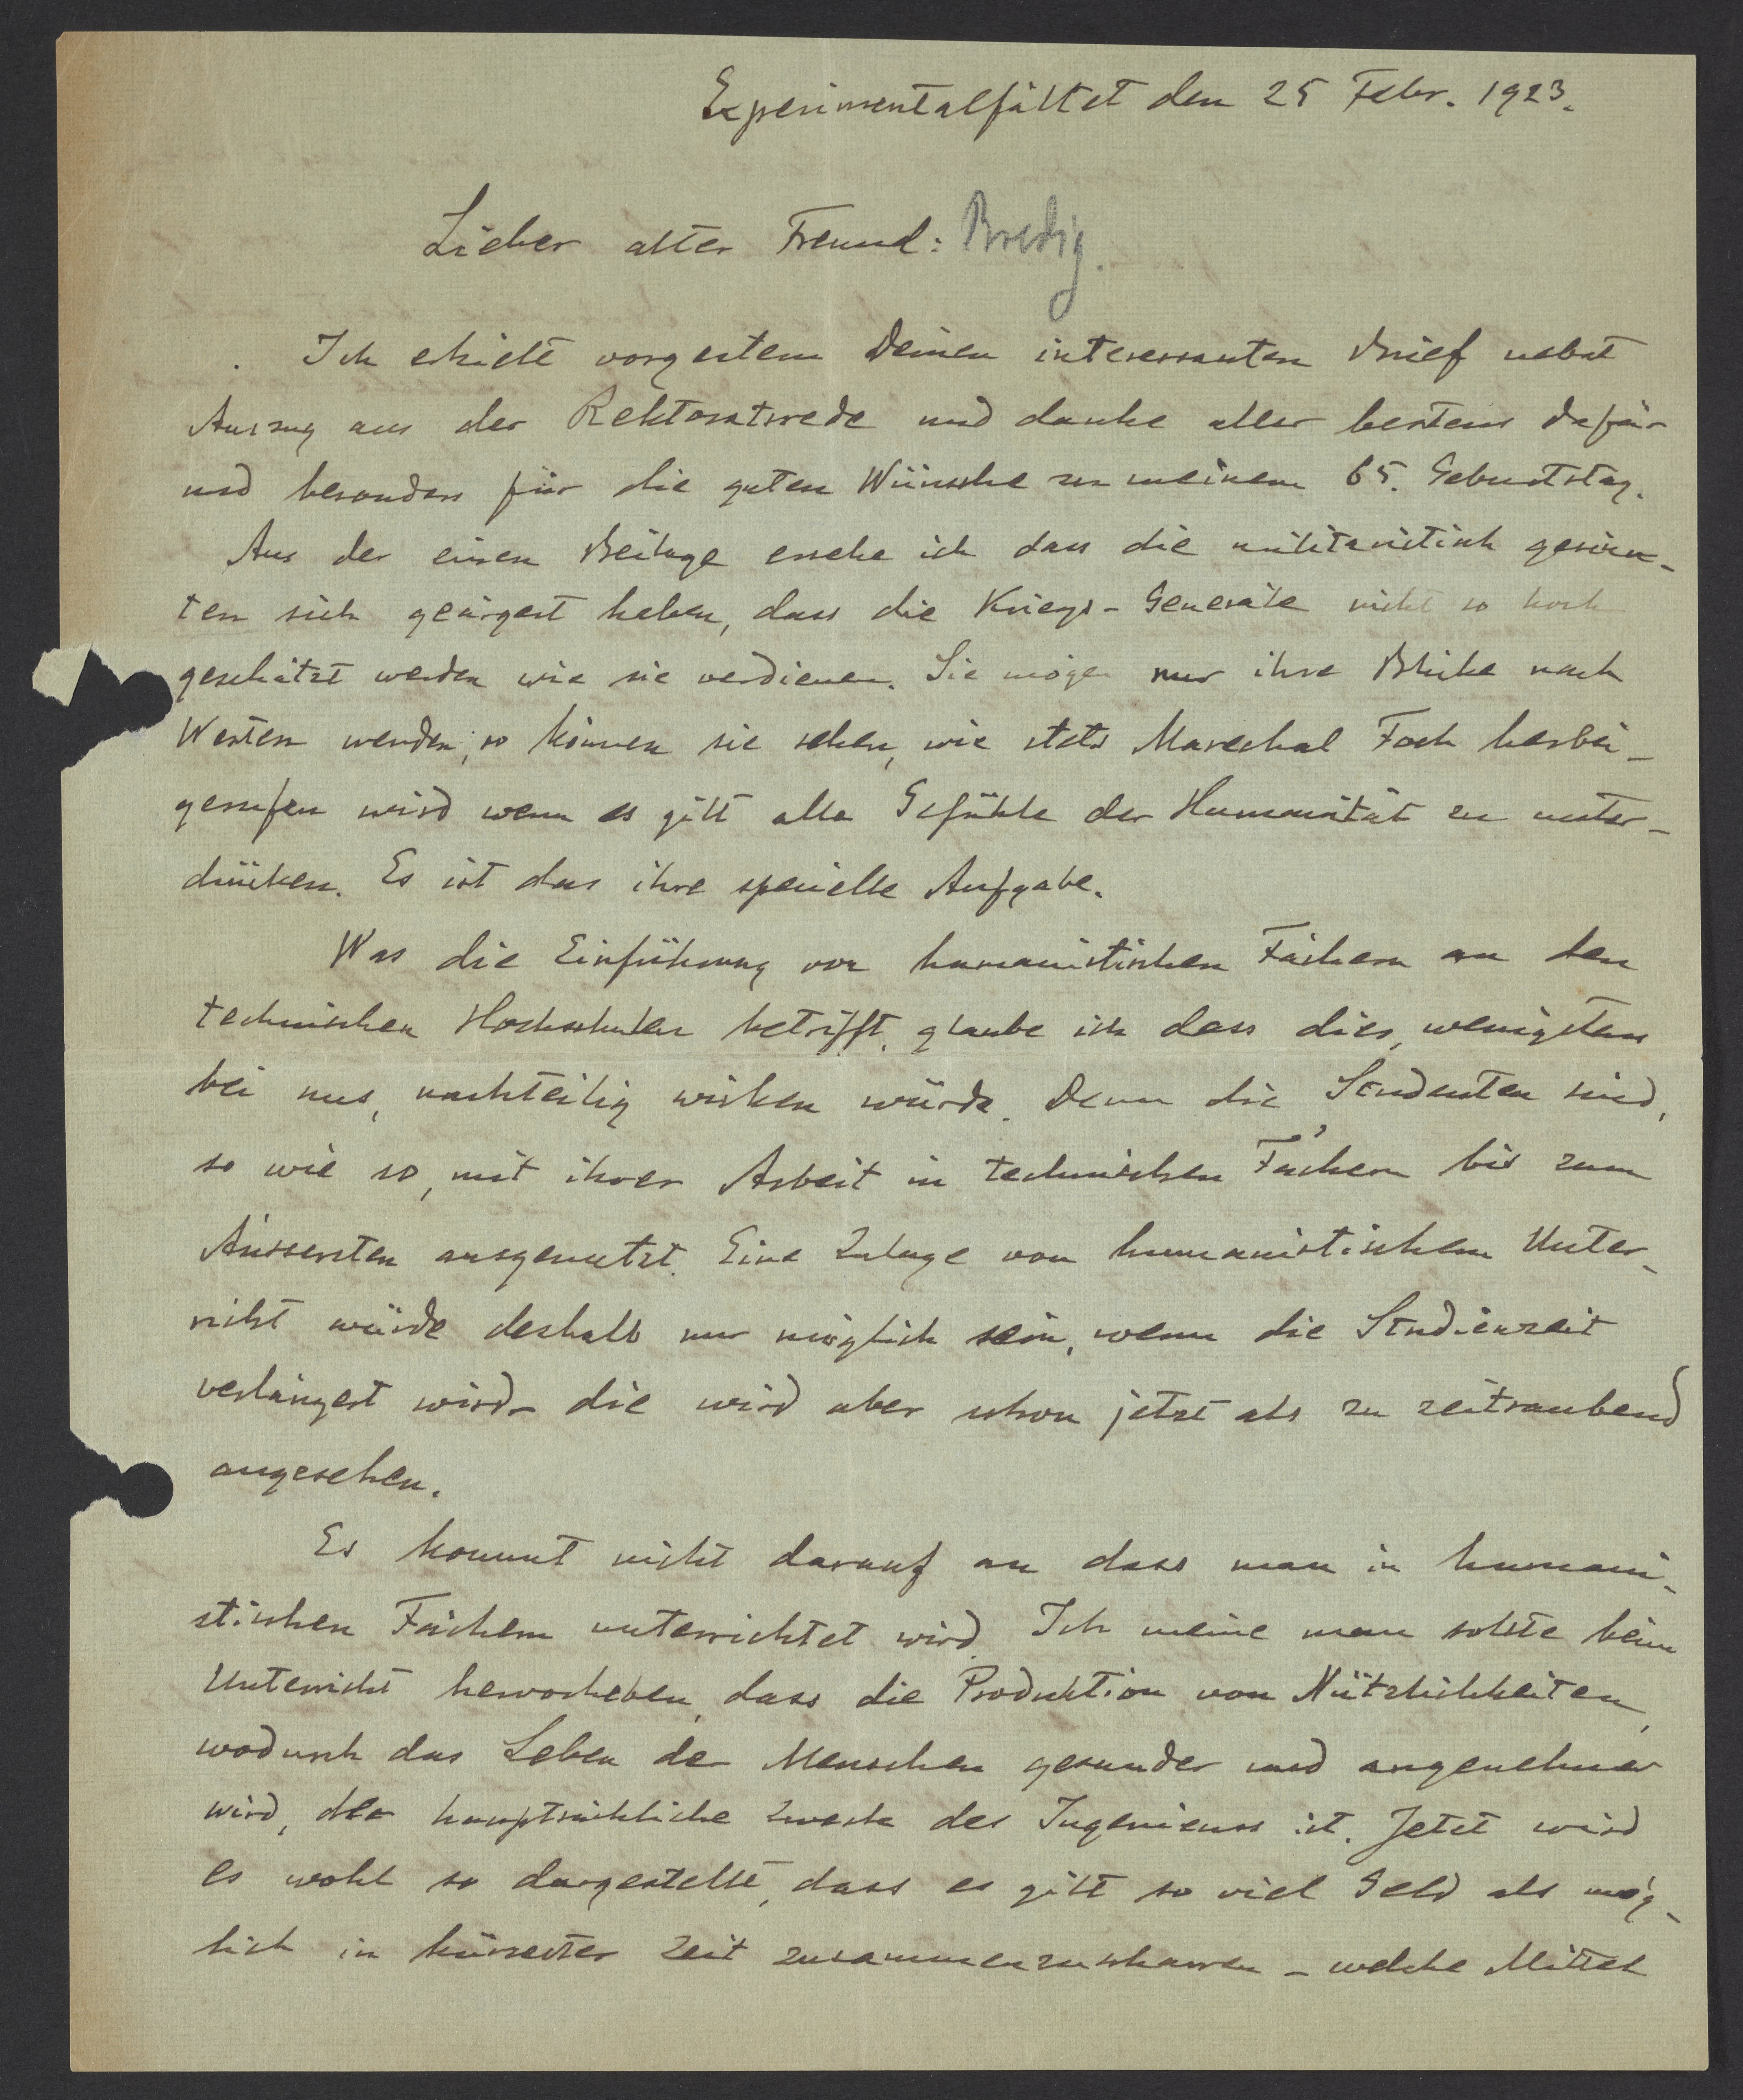 Experimentalfältet den 25 Febr. 1923.
Lieber alter Freund: Bredig.
Ich erhielt vorgestern Deinen interessanten Brief nebst
Auszug aus der Rektoratsrede und danke aller bestens dafür
und besonders für die guten Wünsche zu meinem 65. Geburtstag.
Aus der einen Beilage ersehe ich dass die militaristisch gesinn-
ten sich geärgert haben, dass die Kriegs-Generäle nicht so hoch
geschätzt werden wie sie verdienen. Sie mögen nur ihre Blicke nach
Westen wenden, so können sie sehen, wie stets Marechal Foch herbei-
gerufen wird wenn es gilt alle Gefühle der Humanität zu unter-
drücken. Es ist das ihre spezielle Aufgabe.
Was die Einführung von humanistischen Fächern an den
technischen Hochschulen betrifft, glaube ich dass dies, wenigstens
bei uns, nachteilig wirken würde. Denn die Studenten sind,
so wie so, mit ihrer Arbeit in technischen Fächern bis zum
Äussersten ausgenutzt. Eine Zulage von humanistischem Unter-
richt würde deshalb nur möglich sein, wenn die Studienzeit
verlängert wird - die wird aber schon jetzt als zu zeitraubend
angesehen.
Es kommt nicht darauf an dass man in humani-
stischen Fächern unterrichtet wird. Ich meine man sollte beim
Unterricht hervorheben, dass die Produktion von Nützlichkeiten,
wodurch das Leben der Menschen gesunder und angenehmer
wird, der hauptsächliche Zweck des Ingenieurs ist. Jetzt wird
es wohl so dargestellt, dass es gilt so viel Geld als mög-
lich in kürzester Zeit zusammenzuscharren - welche Mittel